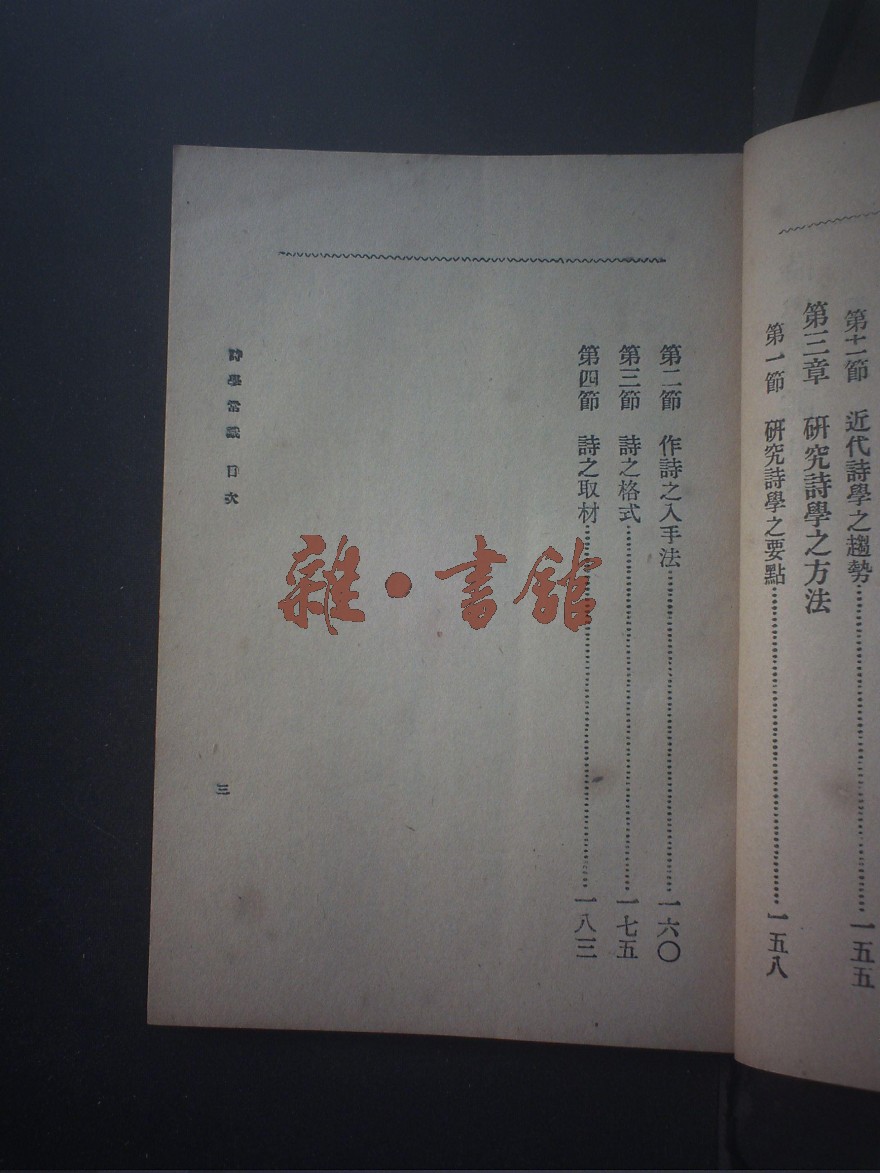 第十一節 近代詩學之趨勢 一五五
第三章 研究詩學之方法
第一節 研究詩學之要點 一五八
第二節 作詩之入手法 一六〇
第三節 詩之格式 一七五
第四節 詩之取材 一八三
詩學常識 目次
三
雜·書館